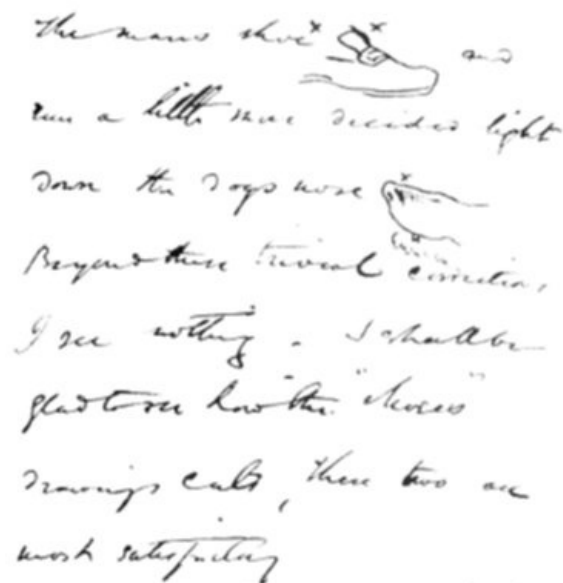 The mans shoe and
run a little more decided light
down the dogs nose
Beyond these trivial corrections,
I see nothing. I shall be
glad to see how the
drawings cuts, these two are
most satisfactory